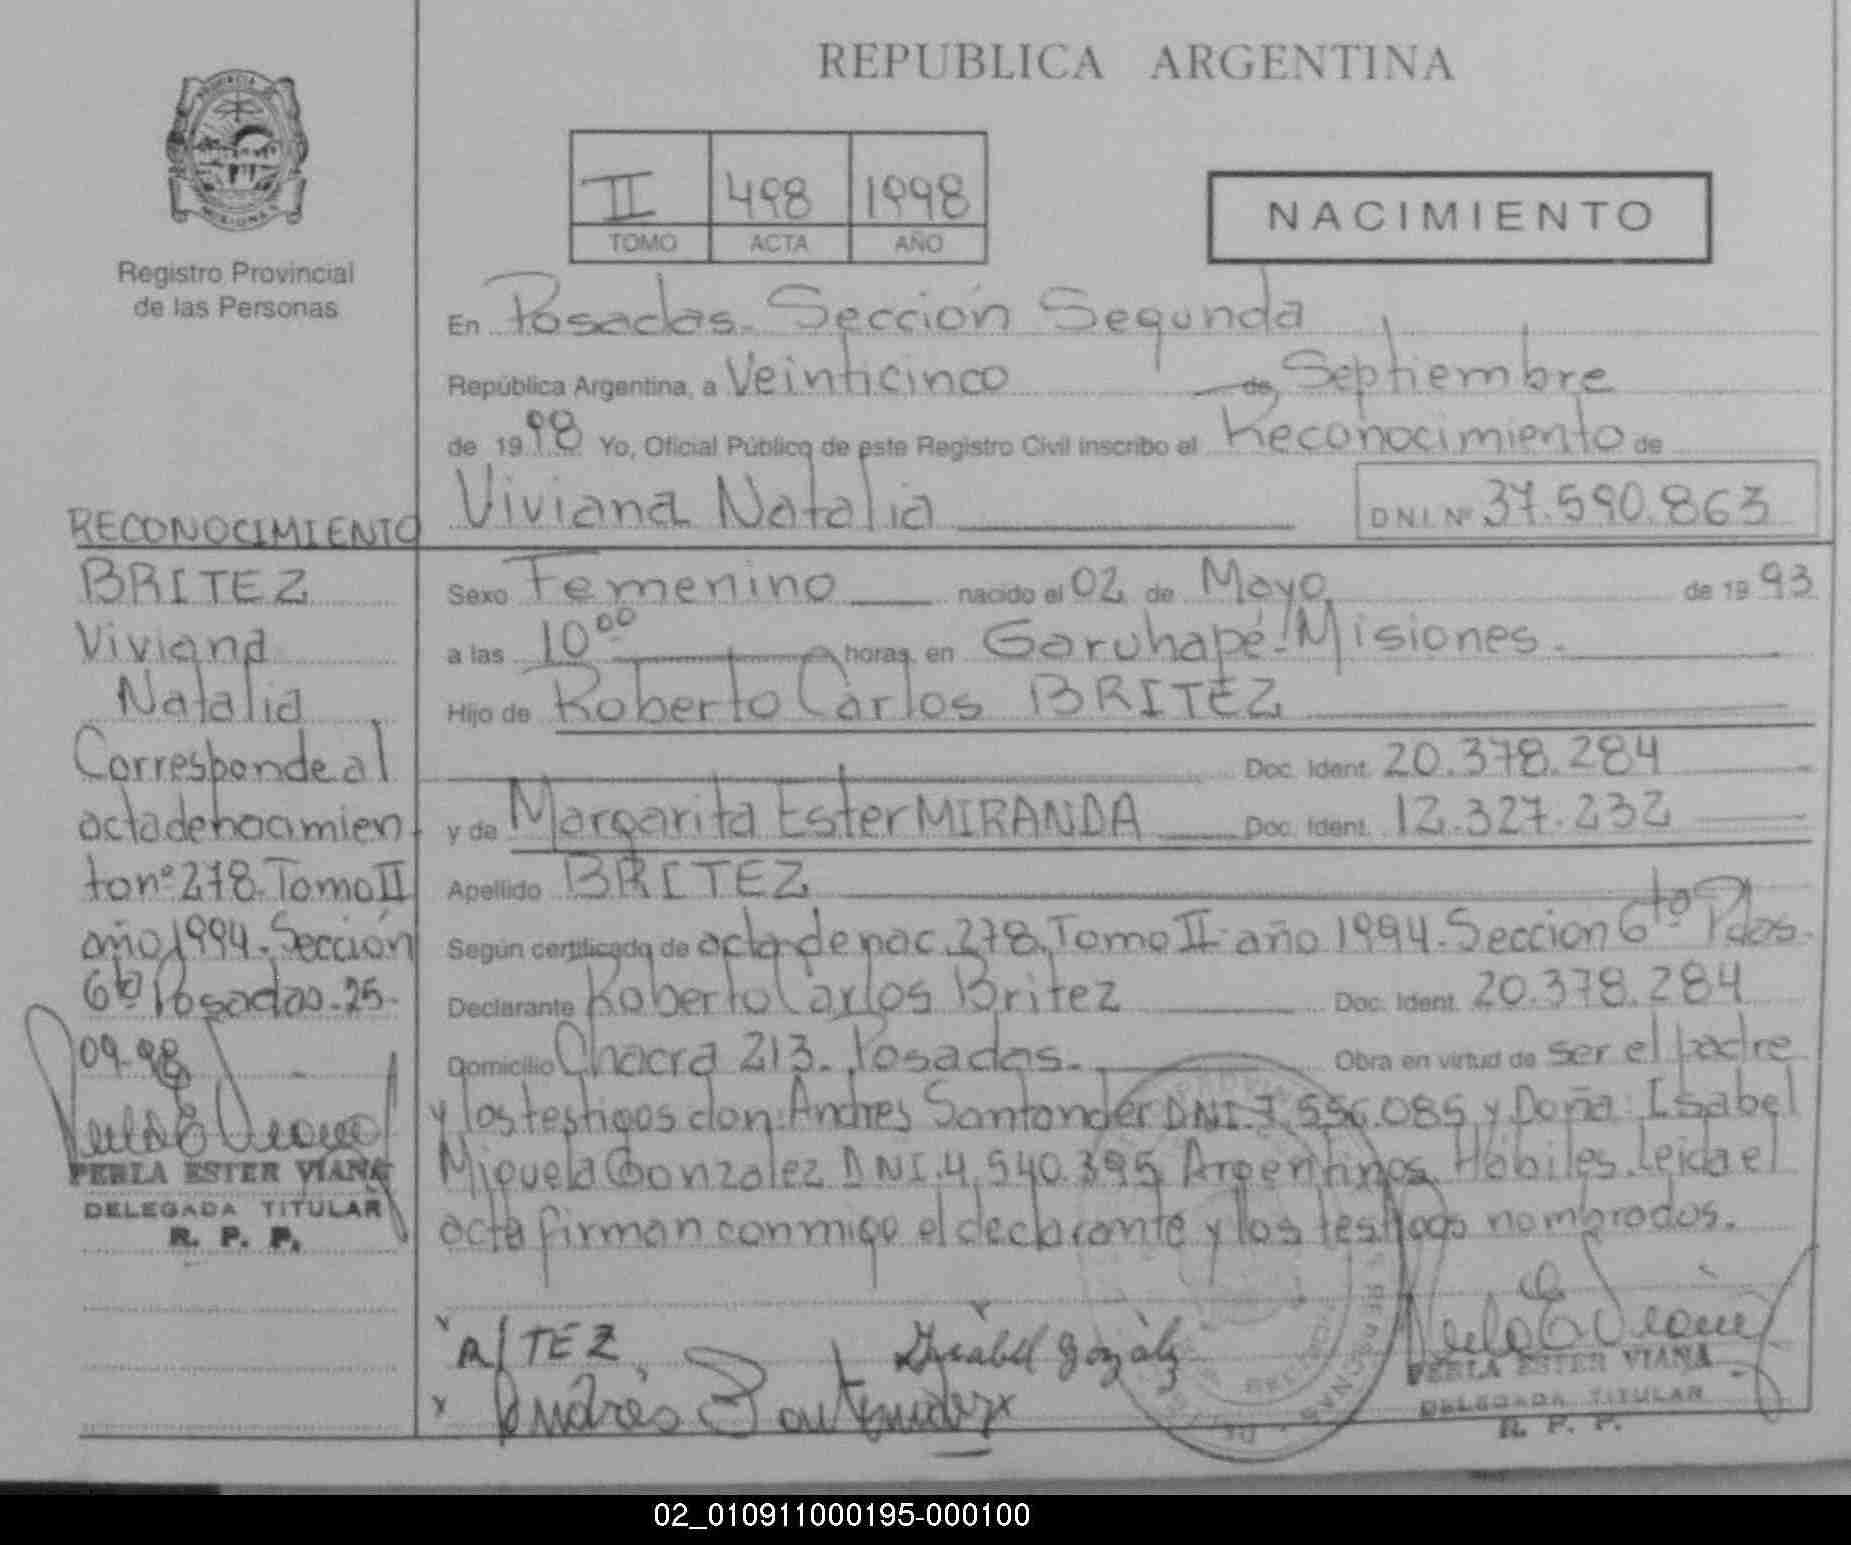 REPUBLICA ARGENTINA
PROVINCIA
MISIONES
Registro Provincial
de las Personas
II 498 1998
TOMO ACTA AÑO
NACIMIENTO
En Posadas. Sección Segunda
República Argentina, a Veinticinco de Septiembre
de 1998 Yo, Oficial Público de este Registro Civil inscribo el Reconocimiento de
Viviana Natalia DNI. Nº 37.590.863
RECONOCIMIENTO
BRITEZ
Viviana
Natalia
Corresponde al
acta de nacimien
to nº 278. Tomo II
año 1994. Sección
6ta Posadas. 25-
09-98
PERLA ESTER VIANA
DELEGADA TITULAR
R. P. P.
Sexo Femenino nacido el 02 de Mayo de 1993
a las 10 00 horas en Garuhapé-Misiones.
Hijo de Roberto Carlos BRITEZ
Doc. Ident. 20.378.284
y de Margarita Ester MIRANDA Doc. Ident. 12.327.232
Apellido BRITEZ
Según certificado de acta de nac. 278. Tomo II año 1994. Seccion 6ta Pdas.
Declarante Roberto Carlos Britez Doc. Ident. 20.378.284
Domicilio Chacra 213. Posadas. Obra en virtud de ser el padre
y los testigos don: Andres Santander DNI. 7.556.085 y Doña: Isabel
Miguela Gonzalez DNI. 4.540.395 Argentinos. Habiles. Leida el
acta firman conmigo el declarante y los testigos nombrados.
Andrés Santander
PERLA ESTER VIANA
DELEGADA TITULAR
R. P. P.
02_010911000195-000100